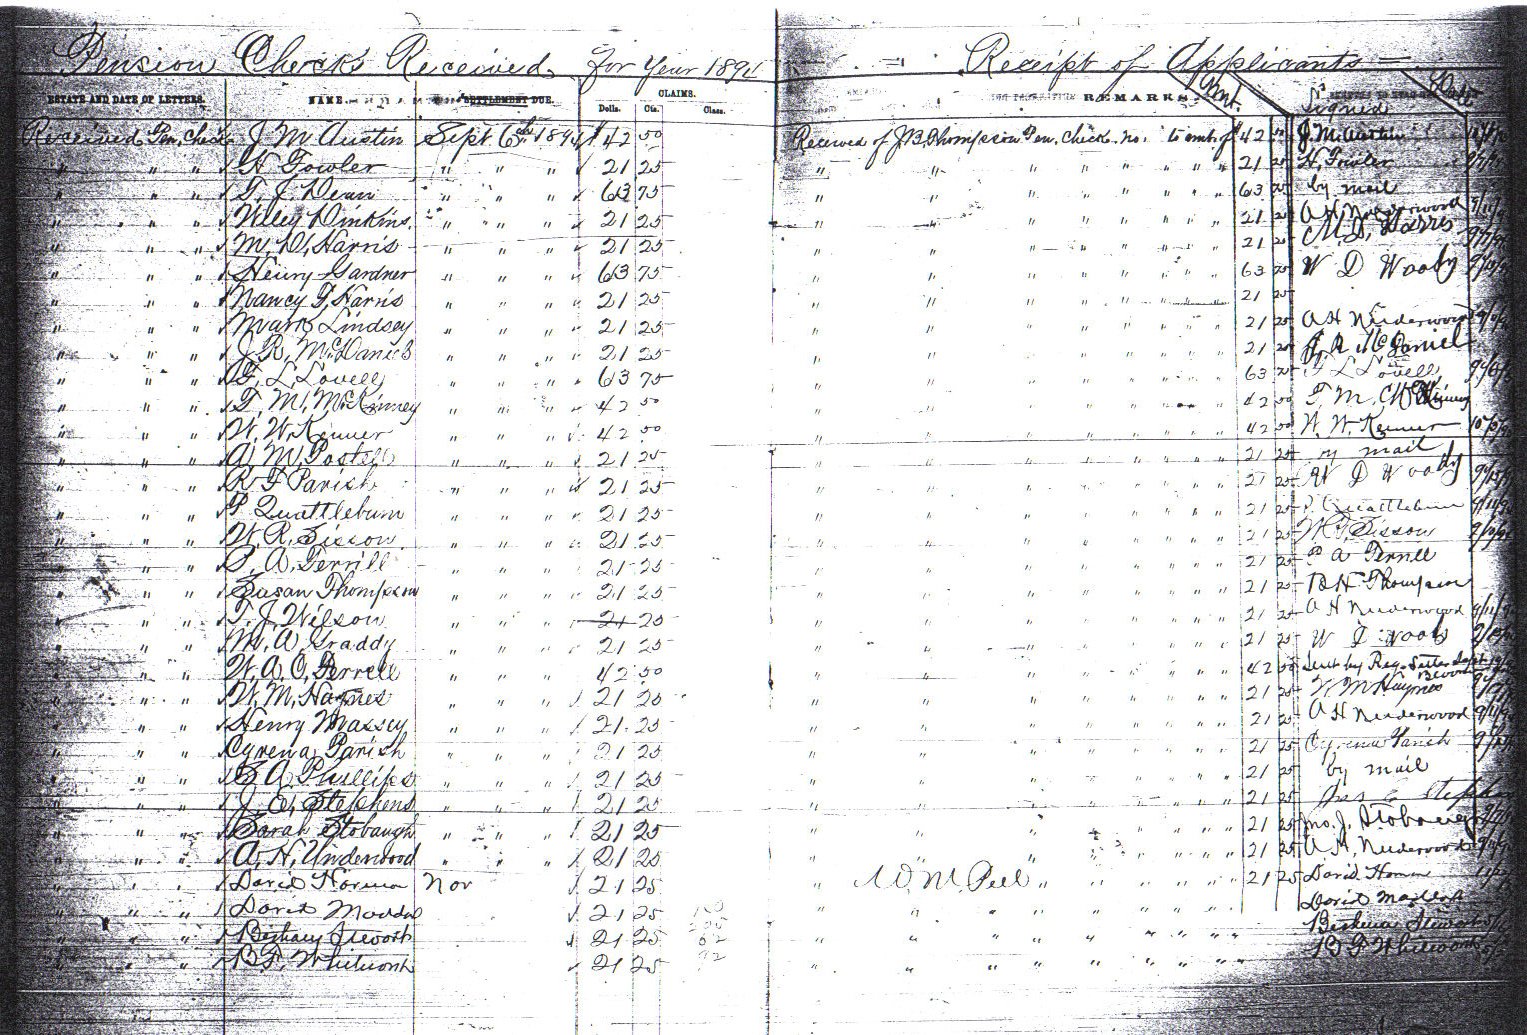 Pension Checks Received for Year 1894 Receipt of Applicants
ESTATE AND DATE OF LETTERS. NAME SETTLEMENT DUE. CLAIMS. Dolls. Cts. Class. REMARKS. Amt. Signed Date
Received Pen. Check J. M. Austin Sept. 6th 1894 $42 50 Received of J. B. Thompson Pen. Check no. to amt. of $42 50 J. M. Austin
" " " H Fowler " " " 21 25 " " " " " " " 21 25 H Fowler
" " " T. J. Dean " " " 63 75 " " " " " " " 63 75 by mail
" " " Wiley Dinkins " " " 21 25 " " " " " " " 21 25 A H Underwood
" " " M. D. Harris " " " 21 25 " " " " " " " 21 25 M. D. Harris
" " " Henry Gardner " " " 63 75 " " " " " " " 63 75 W D Woody
" " " Nancy T. Harris " " " 21 25 " " " " " " " 21 25
" " " Mark Lindsey " " " 21 25 " " " " " " " 21 25 A H Underwood
" " " J. R. McDaniel " " " 21 25 " " " " " " " 21 25 J R McDaniel
" " " F. L. Lovell " " " 63 75 " " " " " " " 63 75 F L Lovell
" " " T. M. McKinney " " " 42 50 " " " " " " " 42 50 T. M. McKinney
" " " W. W. Kenner " " " 42 50 " " " " " " " 42 50 W. W. Kenner
" " " A. M. Postell " " " 21 25 " " " " " " " 21 25 by mail
" " " R F Parish " " " 21 25 " " " " " " " 21 25 W D Woody
" " " P Quattlebum " " " 21 25 " " " " " " " 21 25 P. Quattlebum
" " " W. R. Sisson " " " 21 25 " " " " " " " 21 25 Sisson
" " " A. Terrill " " " 21 25 " " " " " " " 21 25 A Terrell
" " " Susan Thompson " " " 21 25 " " " " " " " 21 25 Thompson
" " " T. J. Wilson " " " 21 25 " " " " " " " 21 25 A H Underwood
" " " M. A Graddy " " " 21 25 " " " " " " " 21 25 W D Woody
" " " W. A. O. Terrell " " " 42 50 " " " " " " " 42 50 sent by Reg. Letter Sept
" " " W. M. Haynes " " " 21 25 " " " " " " " 21 25 W M Haynes
" " " Henry Massey " " " 21 25 " " " " " " " 21 25 A H Underwood
" " " Cyrena Parish " " " 21 25 " " " " " " " 21 25 Cyrena Parish
" " " S. A Phillips " " " 21 25 " " " " " " " 21 25 by mail
" " " J. E. Stephens " " " 21 25 " " " " " " " 21 25 Jas E Stephens
" " " Sarah Stobaugh " " " 21 25 " " " " " " " 21 25 J. Stobaugh
" " " A. H. Underwood " " " 21 25 " " " " " " " 21 25 A. H. Underwood
" " " David Nov 21 25 " W. M. Peel " " " " " 21 25 David
" " " David Maddox 21 25 " " " " " " " David Maddox
" " " Stewart 21 25 " " " " " " " Stewart
" " " B. F. 21 25 " " " " " " " B F